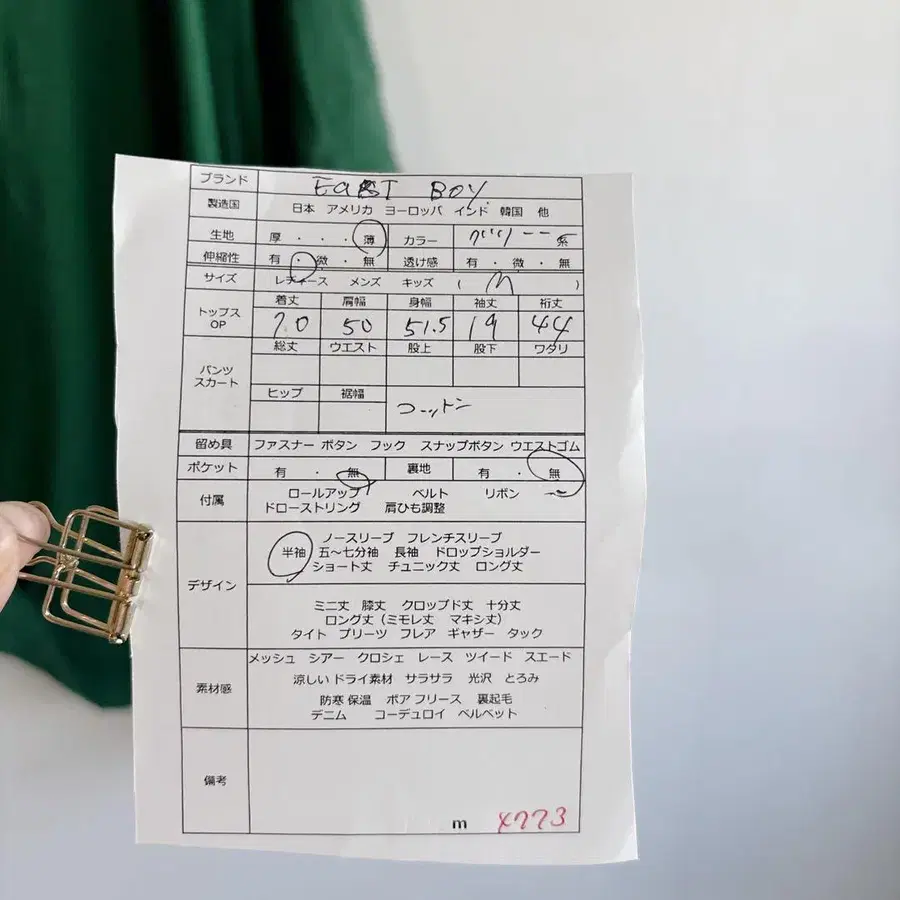 ブランド EAST BOY
製造国 日本 アメリカ ヨーロッパ インド 韓国 他
生地 厚 ・ ・ ・ 薄 カラー グリーン 系
伸縮性 有 ・ 微 ・ 無 透け感 有 ・ 微 ・ 無
サイズ レディース メンズ キッズ ( M )
トップス OP 着丈 肩幅 身幅 袖丈 裄丈
70 50 51.5 19 44
パンツ スカート 総丈 ウエスト 股上 股下 ワタリ
ヒップ 裾幅
コットン
留め具 ファスナー ボタン フック スナップボタン ウエストゴム
ポケット 有 ・ 無 裏地 有 ・ 無
付属 ロールアップ ベルト リボン
ドローストリング 肩ひも調整
デザイン
ノースリーブ フレンチスリーブ
半袖 五〜七分袖 長袖 ドロップショルダー
ショート丈 チュニック丈 ロング丈
ミニ丈 膝丈 クロップド丈 十分丈
ロング丈（ミモレ丈 マキシ丈）
タイト プリーツ フレア ギャザー タック
素材感
メッシュ シアー クロシェ レース ツイード スエード
涼しい ドライ素材 サラサラ 光沢 とろみ
防寒 保温 ボア フリース 裏起毛
デニム コーデュロイ ベルベット
備考
m X773